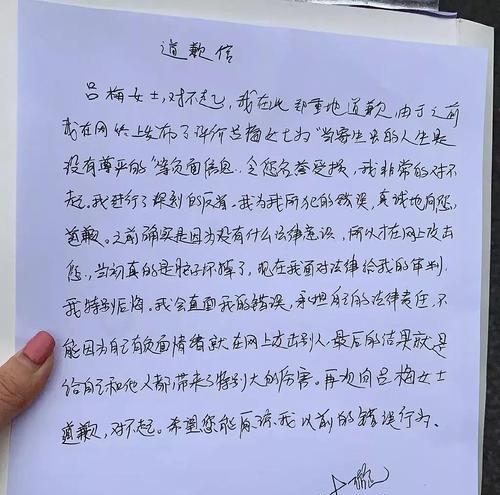 道歉信
吕梅女士，对不起，我在此郑重地道歉，由于之前
我在网络上发布了评价吕梅女士为"当寄生虫的人生是
没有尊严的"等负面信息，令您名誉受损，我非常的对不
起。我进行了深刻的反省。我为我所犯的错误，真诚地向您，
道歉。之前确实是因为没有什么法律意识，所以才在网上攻击
您，当初真的是脑子坏掉了，现在我面对法律给我的审判，
我特别后悔。我会直面我的错误，承担自己的法律责任，不
能因为自己有负面情绪就在网上攻击别人，最后的结果就是
给自己和他人都带来了特别大的伤害。再次向吕梅女士
道歉，对不起。希望您能原谅我以前的错误行为。